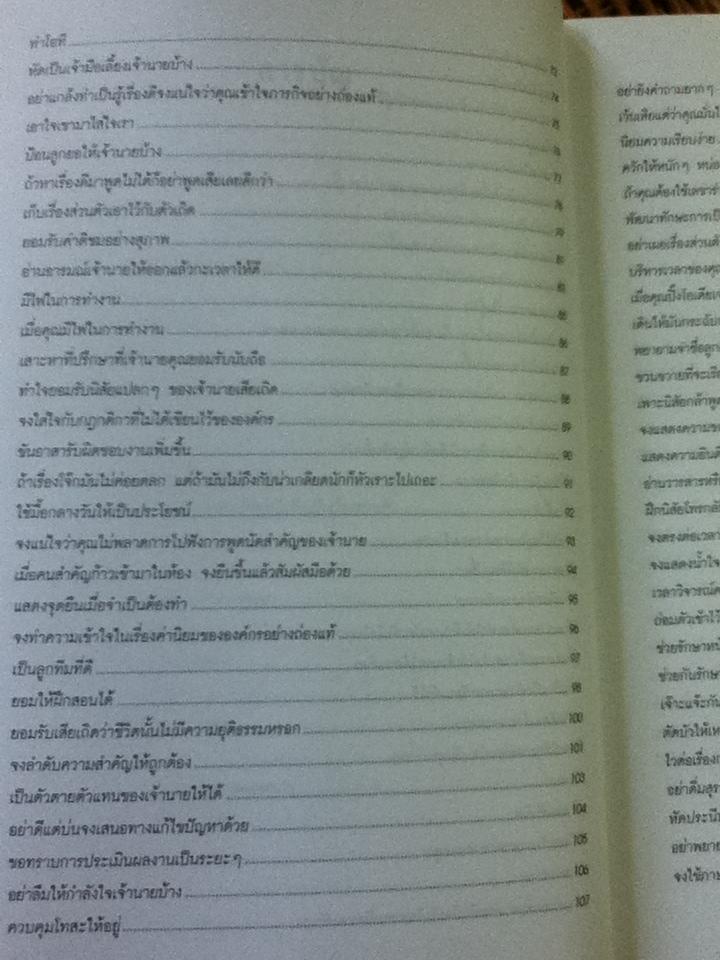 ทำโอที
หัดเป็นเจ้ามือเลี้ยงเจ้านายบ้าง 73
อย่าแกล้งทำเป็นรู้เรื่องดีจงแน่ใจว่าคุณเข้าใจภารกิจอย่างถ่องแท้ 74
เอาใจเขามาใส่ใจเรา 75
ป้อนลูกยอให้เจ้านายบ้าง 76
ถ้าหาเรื่องดีมาพูดไม่ได้ก็อย่าพูดเสียเลยดีกว่า 77
เก็บเรื่องส่วนตัวเอาไว้กับตัวเถิด 78
ยอมรับคำติชมอย่างสุภาพ
อ่านอารมณ์เจ้านายให้ออกแล้วกะเวลาให้ดี
มีไฟในการทำงาน
เมื่อคุณมีไฟในการทำงาน 85
เสาะหาที่ปรึกษาที่เจ้านายคุณยอมรับนับถือ 86
ทำใจยอมรับนิสัยแปลกๆ ของเจ้านายเสียเถิด 87
จงใส่ใจกับกฎกติกาที่ไม่ได้เขียนไว้ขององค์กร 88
ขันอาสารับผิดชอบงานเพิ่มขึ้น 89
ถ้าเรื่องโจ๊กมันไม่ค่อยตลก แต่ถ้ามันไม่ถึงกับน่าเกลียดนักก็หัวเราะไปเถอะ 90
ใช้มื้อกลางวันให้เป็นประโยชน์ 91
จงแน่ใจว่าคุณไม่พลาดการไปฟังการพูดนัดสำคัญของเจ้านาย 92
เมื่อคนสำคัญก้าวเข้ามาในห้อง จงยืนขึ้นแล้วสัมผัสมือด้วย 93
แสดงจุดยืนเมื่อจำเป็นต้องทำ 94
จงทำความเข้าใจในเรื่องค่านิยมขององค์กรอย่างถ่องแท้ 95
เป็นลูกทีมที่ดี 96
ยอมให้ฝึกสอนได้ 97
ยอมรับเสียเถิดว่าชีวิตนั้นไม่มีความยุติธรรมหรอก 98
จงลำดับความสำคัญให้ถูกต้อง 100
เป็นตัวตายตัวแทนของเจ้านายให้ได้ 101
อย่าดีแต่บ่นจงเสนอทางแก้ไขปัญหาด้วย 103
ขอทราบการประเมินผลงานเป็นระยะๆ 104
อย่าลืมให้กำลังใจเจ้านายบ้าง 105
ควบคุมโทสะให้อยู่ 106
107
อย่ายิงคำถามยากๆ
เว้นเสียแต่ว่าคุณมั่นใ
นิยมความเรียบง่าย
ควักให้หนักๆ หน่อ
ถ้าคุณต้องใช้เลขาร่
พัฒนาทักษะการเป็
อย่าเผยเรื่องส่วนตั
บริหารเวลาของคุ
เมื่อคุณปิ๊งไอเดีย
เดินให้มันกระฉับ
พยายามจำชื่อลูก
ขวนขวายที่จะเรีย
เพาะนิสัยกล้าพูด
จงแสดงความข
แสดงความยินดี
อ่านวารสารหรื
ฝึกนิสัยโทรกลั
จงตรงต่อเวลา
จงแสดงน้ำใจ
เวลาวิจารณ์ค
ถ่อมตัวเข้าไว้
ช่วยรักษาหน้
ช่วยกันรักษา
เจ๊าะแจ๊ะกั
ตัดบัวให้เห
ไวต่อเรื่อง
อย่าดื่มสุร
หัดประนี
อย่าพยาย
จงใช้ภาษ